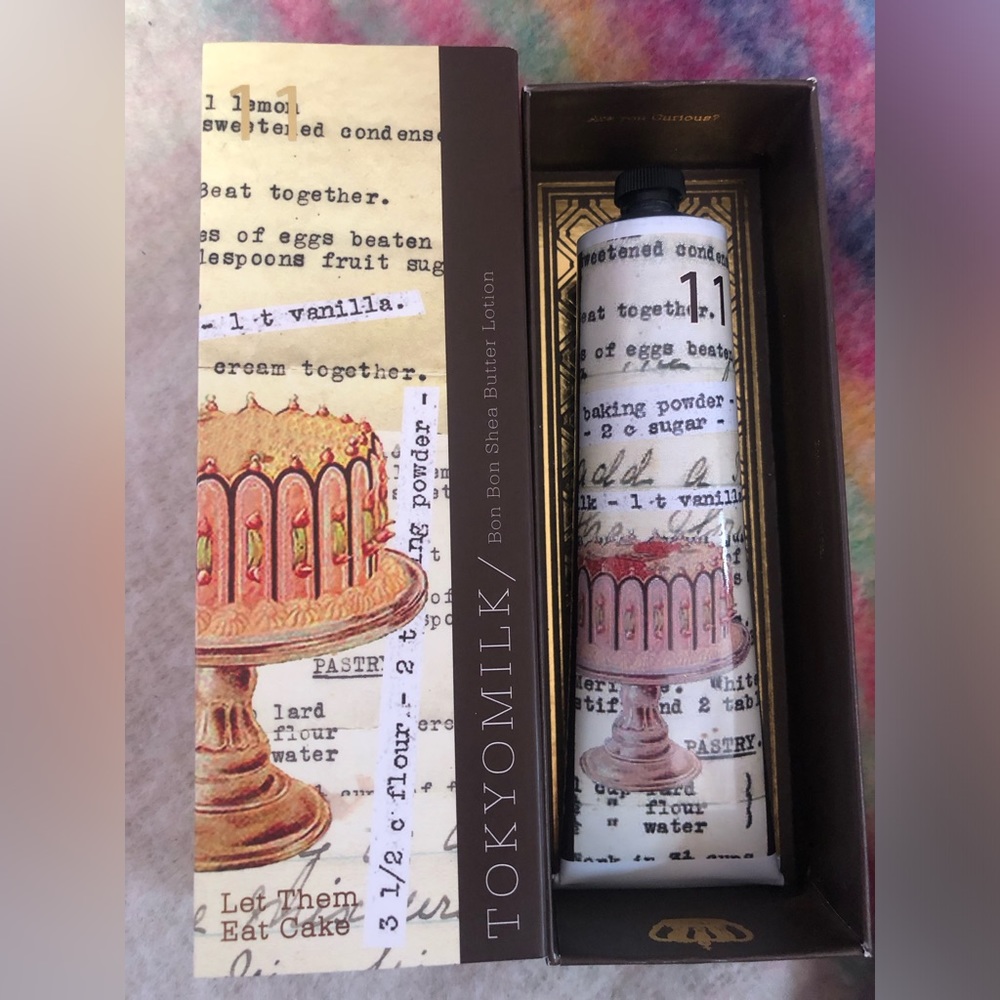 11
1 lemon
sweetened condense
Beat together.
es of eggs beaten
lespoons fruit sug
- 1 t vanilla.
cream together.
3 1/2 c flour - 2 t ing powder -
PASTRY
lard
flour
water
Let Them
Eat Cake
TOKYOMILK / Bon Bon Shea Butter Lotion
Are you Curious?
sweetened conden
11
eat together.
s of eggs beaten
baking powder -
- 2 c sugar -
add a
lk - 1 t vanilla
White
stif nd 2 tabl
PASTRY.
1 cup lard
" flour }
" water
Work in